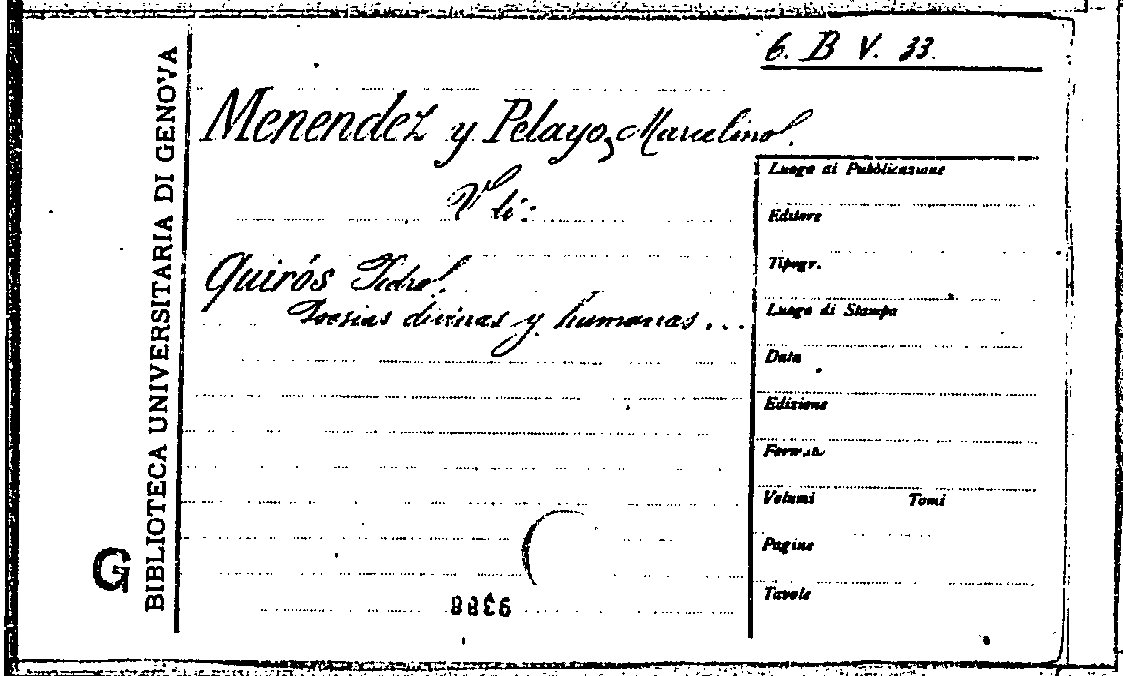 6. B V. 33.
BIBLIOTECA UNIVERSITARIA DI GENOVA
G
Menendez y Pelayo, Marcelino.
V di:
Quirós Pedro.
Poesias divinas y humanas...
Luogo di Pubblicazione
Editore
Tipogr.
Luogo di Stampa
Data
Edizione
Formato
Volumi Tomi
Pagine
Tavole